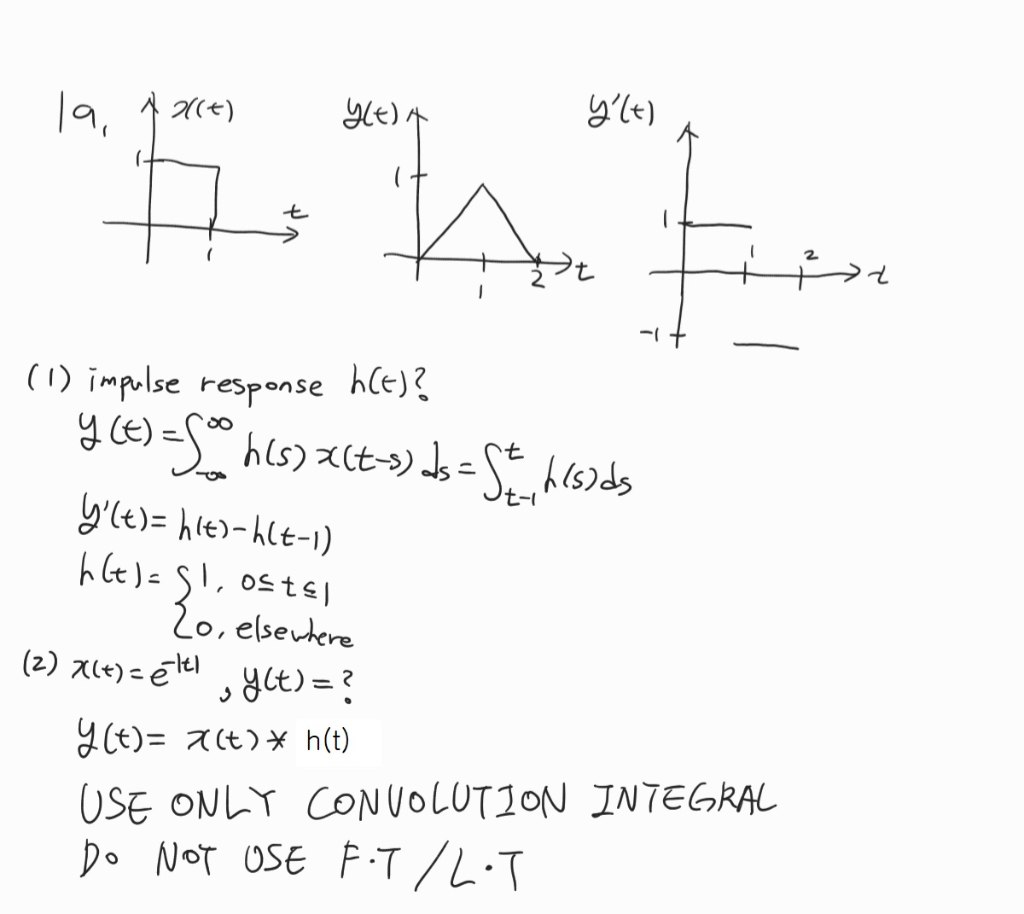 19. x(t) y(t) y'(t)
1 1 t
1 1 2 t
1 -1 1 2 t
(1) impulse response h(t)?
y(t)=∫_{-∞}^{∞} h(s) x(t-s) ds = ∫_{t-1}^{t} h(s)ds
y'(t)= h(t)-h(t-1)
h(t)= {1, 0≤t≤1
0, elsewhere
(2) x(t)=e^{-|t|}, y(t)=?
y(t)= x(t)* h(t)
USE ONLY CONVOLUTION INTEGRAL
DO NOT USE F.T/L.T